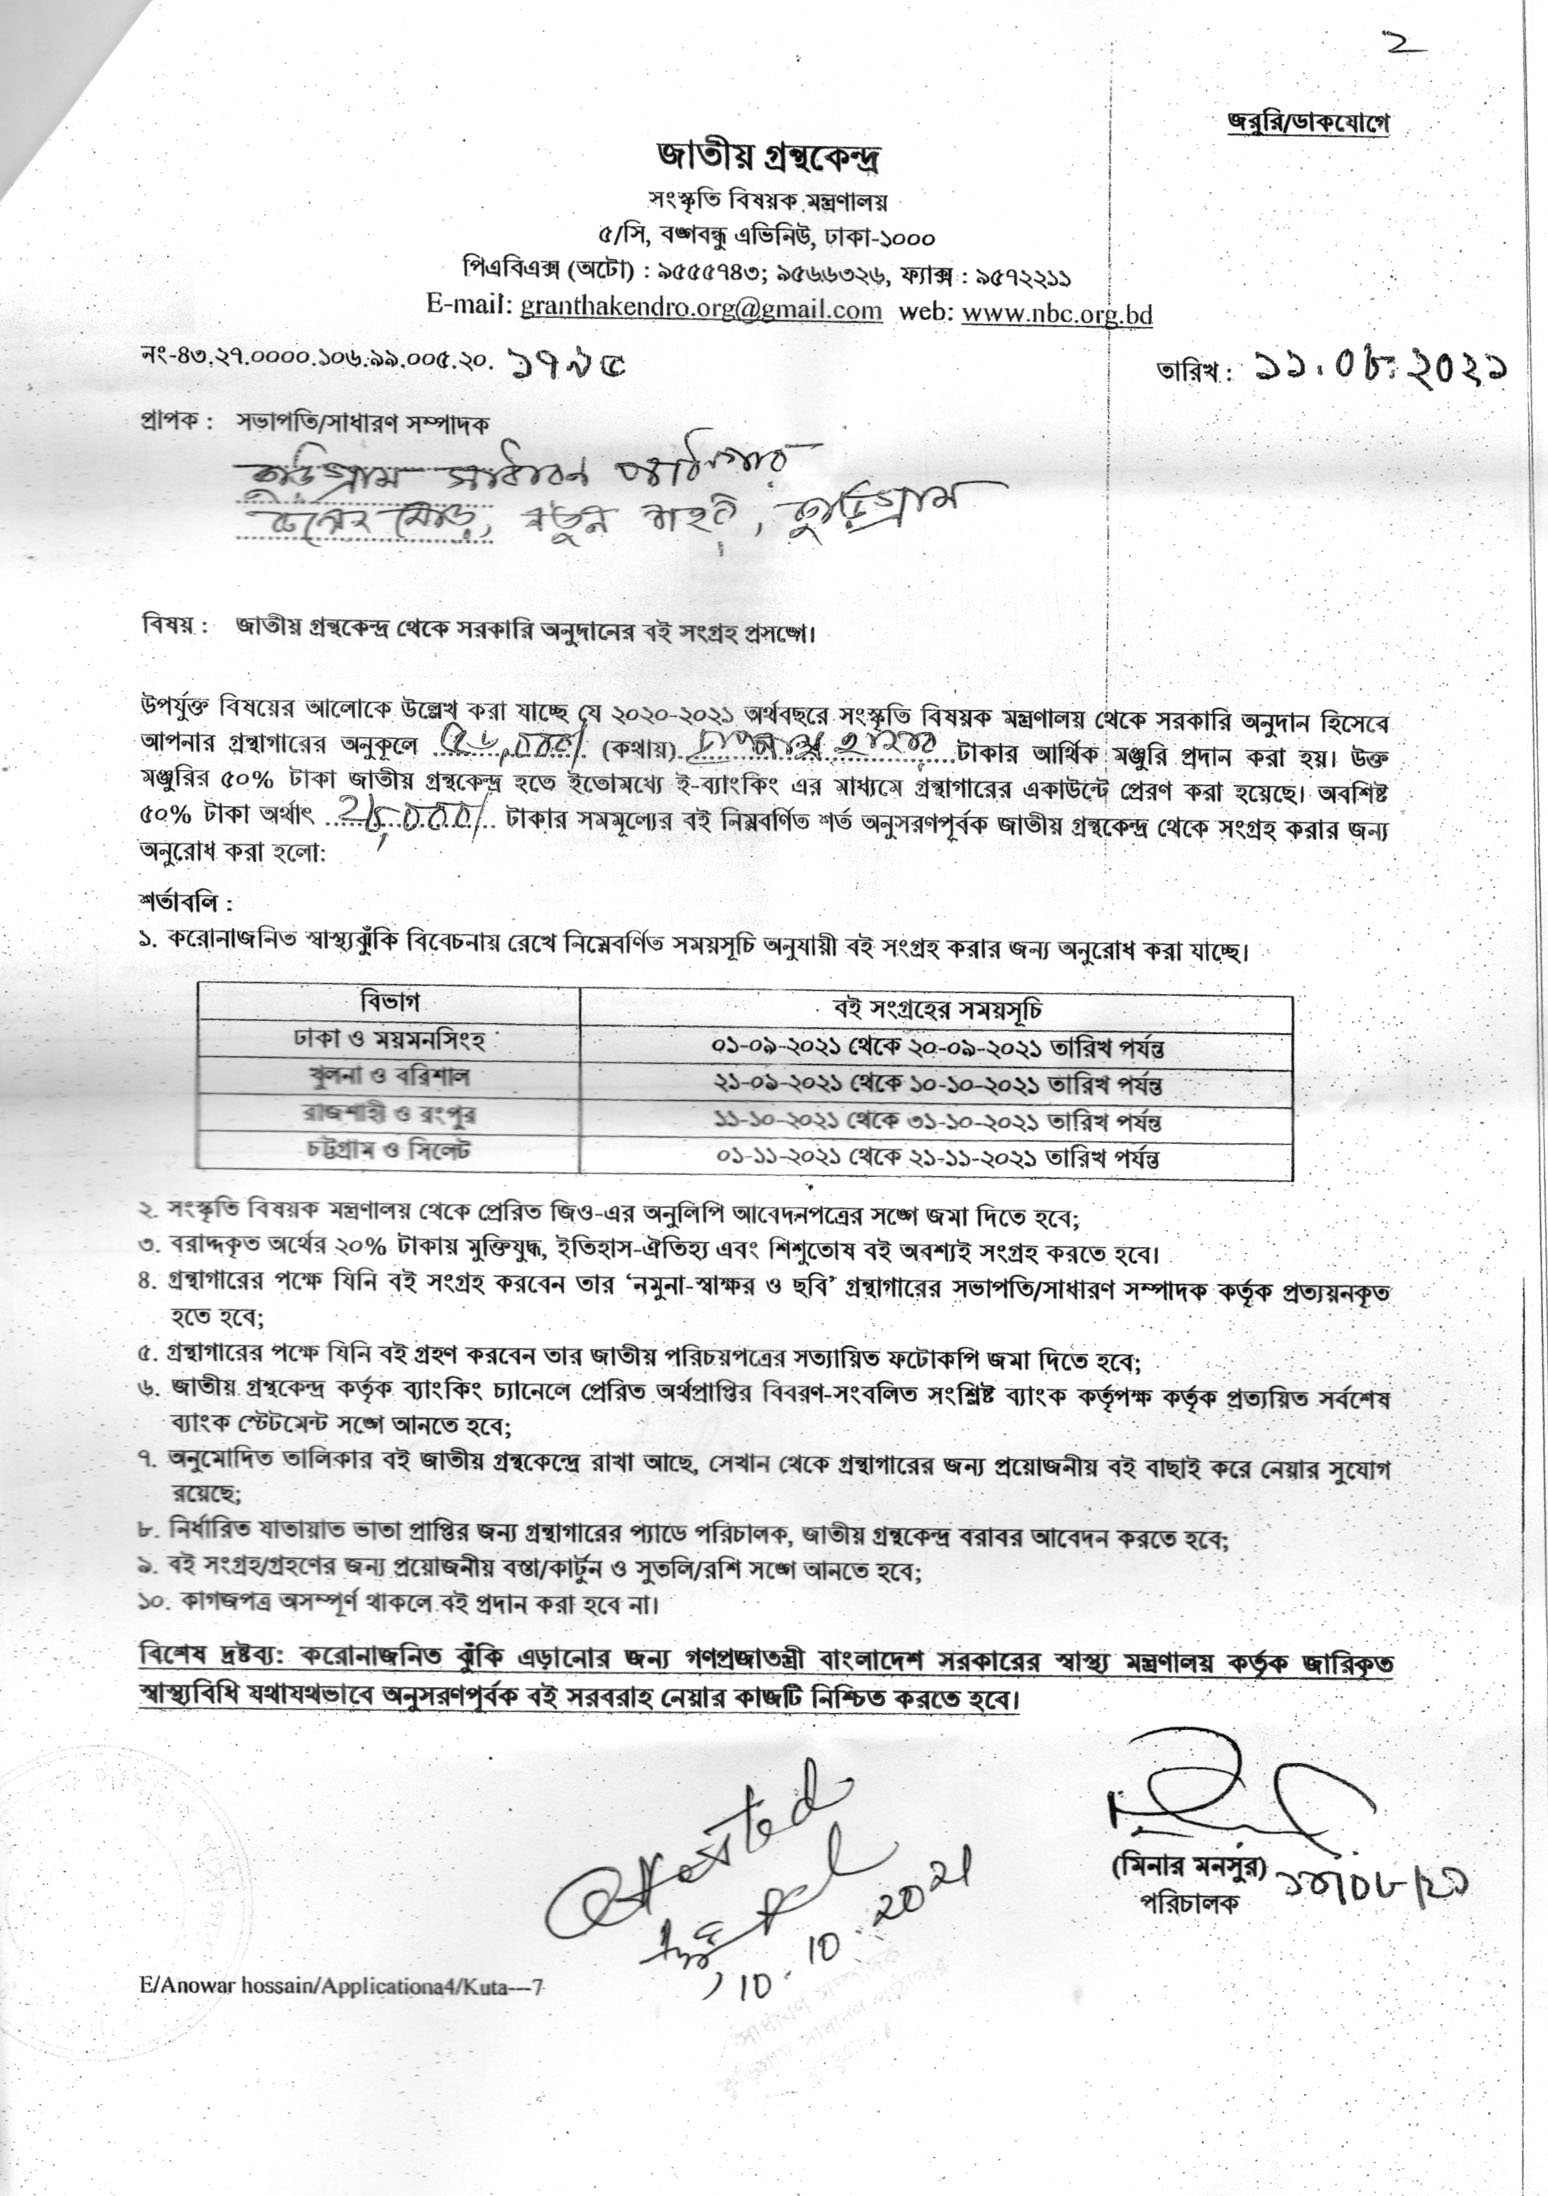 2
জরুরি/ডাকযোগে
জাতীয় গ্রন্থকেন্দ্র
সংস্কৃতি বিষয়ক মন্ত্রণালয়
৫/সি, বঙ্গবন্ধু এভিনিউ, ঢাকা-১০০০
পিএবিএক্স (অটো) : ৯৫৫৫৭৪৩; ৯৫৬৬৩২৬, ফ্যাক্স : ৯৫৭২২১১
E-mail: granthakendro.org@gmail.com web: www.nbc.org.bd
নং-৪৩.২৭.০০০০.১০৬.৯৯.০০৫.২০. ১৭৯৫
তারিখ : ১১.০৮.২০২১
প্রাপক : সভাপতি/সাধারণ সম্পাদক
কুড়িগ্রাম সাধারন পাঠাগার
মোড়, নতুন শহর, কুড়িগ্রাম
বিষয় : জাতীয় গ্রন্থকেন্দ্র থেকে সরকারি অনুদানের বই সংগ্রহ প্রসঙ্গে।
উপর্যুক্ত বিষয়ের আলোকে উল্লেখ করা যাচ্ছে যে ২০২০-২০২১ অর্থবছরে সংস্কৃতি বিষয়ক মন্ত্রণালয় থেকে সরকারি অনুদান হিসেবে
আপনার গ্রন্থাগারের অনুকূলে (কথায়) হাজার টাকার আর্থিক মঞ্জুরি প্রদান করা হয়। উক্ত
মঞ্জুরির ৫০% টাকা জাতীয় গ্রন্থকেন্দ্র হতে ইতোমধ্যে ই-ব্যাংকিং এর মাধ্যমে গ্রন্থাগারের একাউন্টে প্রেরণ করা হয়েছে। অবশিষ্ট
৫০% টাকা অর্থাৎ টাকার সমমূল্যের বই নিম্নবর্ণিত শর্ত অনুসরণপূর্বক জাতীয় গ্রন্থকেন্দ্র থেকে সংগ্রহ করার জন্য
অনুরোধ করা হলো:
শর্তাবলি :
১. করোনাজনিত স্বাস্থ্যঝুঁকি বিবেচনায় রেখে নিম্নেবর্ণিত সময়সূচি অনুযায়ী বই সংগ্রহ করার জন্য অনুরোধ করা যাচ্ছে।
বিভাগ বই সংগ্রহের সময়সূচি
ঢাকা ও ময়মনসিংহ ০১-০৯-২০২১ থেকে ২০-০৯-২০২১ তারিখ পর্যন্ত
খুলনা ও বরিশাল ২১-০৯-২০২১ থেকে ১০-১০-২০২১ তারিখ পর্যন্ত
রাজশাহী ও রংপুর ১১-১০-২০২১ থেকে ৩১-১০-২০২১ তারিখ পর্যন্ত
চট্টগ্রাম ও সিলেট ০১-১১-২০২১ থেকে ২১-১১-২০২১ তারিখ পর্যন্ত
২. সংস্কৃতি বিষয়ক মন্ত্রণালয় থেকে প্রেরিত জিও-এর অনুলিপি আবেদনপত্রের সঙ্গে জমা দিতে হবে;
৩. বরাদ্দকৃত অর্থের ২০% টাকায় মুক্তিযুদ্ধ, ইতিহাস-ঐতিহ্য এবং শিশুতোষ বই অবশ্যই সংগ্রহ করতে হবে।
৪. গ্রন্থাগারের পক্ষে যিনি বই সংগ্রহ করবেন তার ‘নমুনা-স্বাক্ষর ও ছবি’ গ্রন্থাগারের সভাপতি/সাধারণ সম্পাদক কর্তৃক প্রত্যয়নকৃত
হতে হবে;
৫. গ্রন্থাগারের পক্ষে যিনি বই গ্রহণ করবেন তার জাতীয় পরিচয়পত্রের সত্যায়িত ফটোকপি জমা দিতে হবে;
৬. জাতীয় গ্রন্থকেন্দ্র কর্তৃক ব্যাংকিং চ্যানেলে প্রেরিত অর্থপ্রাপ্তির বিবরণ-সংবলিত সংশ্লিষ্ট ব্যাংক কর্তৃপক্ষ কর্তৃক প্রত্যয়িত সর্বশেষ
ব্যাংক স্টেটমেন্ট সঙ্গে আনতে হবে;
৭. অনুমোদিত তালিকার বই জাতীয় গ্রন্থকেন্দ্রে রাখা আছে, সেখান থেকে গ্রন্থাগারের জন্য প্রয়োজনীয় বই বাছাই করে নেয়ার সুযোগ
রয়েছে;
৮. নির্ধারিত যাতায়াত ভাতা প্রাপ্তির জন্য গ্রন্থাগারের প্যাডে পরিচালক, জাতীয় গ্রন্থকেন্দ্র বরাবর আবেদন করতে হবে;
৯. বই সংগ্রহ/গ্রহণের জন্য প্রয়োজনীয় বস্তা/কার্টুন ও সুতলি/রশি সঙ্গে আনতে হবে;
১০. কাগজপত্র অসম্পূর্ণ থাকলে বই প্রদান করা হবে না।
বিশেষ দ্রষ্টব্য: করোনাজনিত ঝুঁকি এড়ানোর জন্য গণপ্রজাতন্ত্রী বাংলাদেশ সরকারের স্বাস্থ্য মন্ত্রণালয় কর্তৃক জারিকৃত
স্বাস্থ্যবিধি যথাযথভাবে অনুসরণপূর্বক বই সরবরাহ নেয়ার কাজটি নিশ্চিত করতে হবে।
Attested
10.10.2021
(মিনার মনসুর)
পরিচালক
E/Anowar hossain/Applicationa4/Kuta---7
সাধারণ সম্পাদক